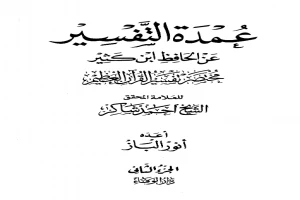 عُمدَة التَّفسِير
عَنِ الحَافِظ ابن كَثير
مختصر تفسير القرآن العظيم
للعلامة المحقق
الشيخ أحمد شاكر
أعده
أنور الباز
الجزء الثاني
دار الوفاء